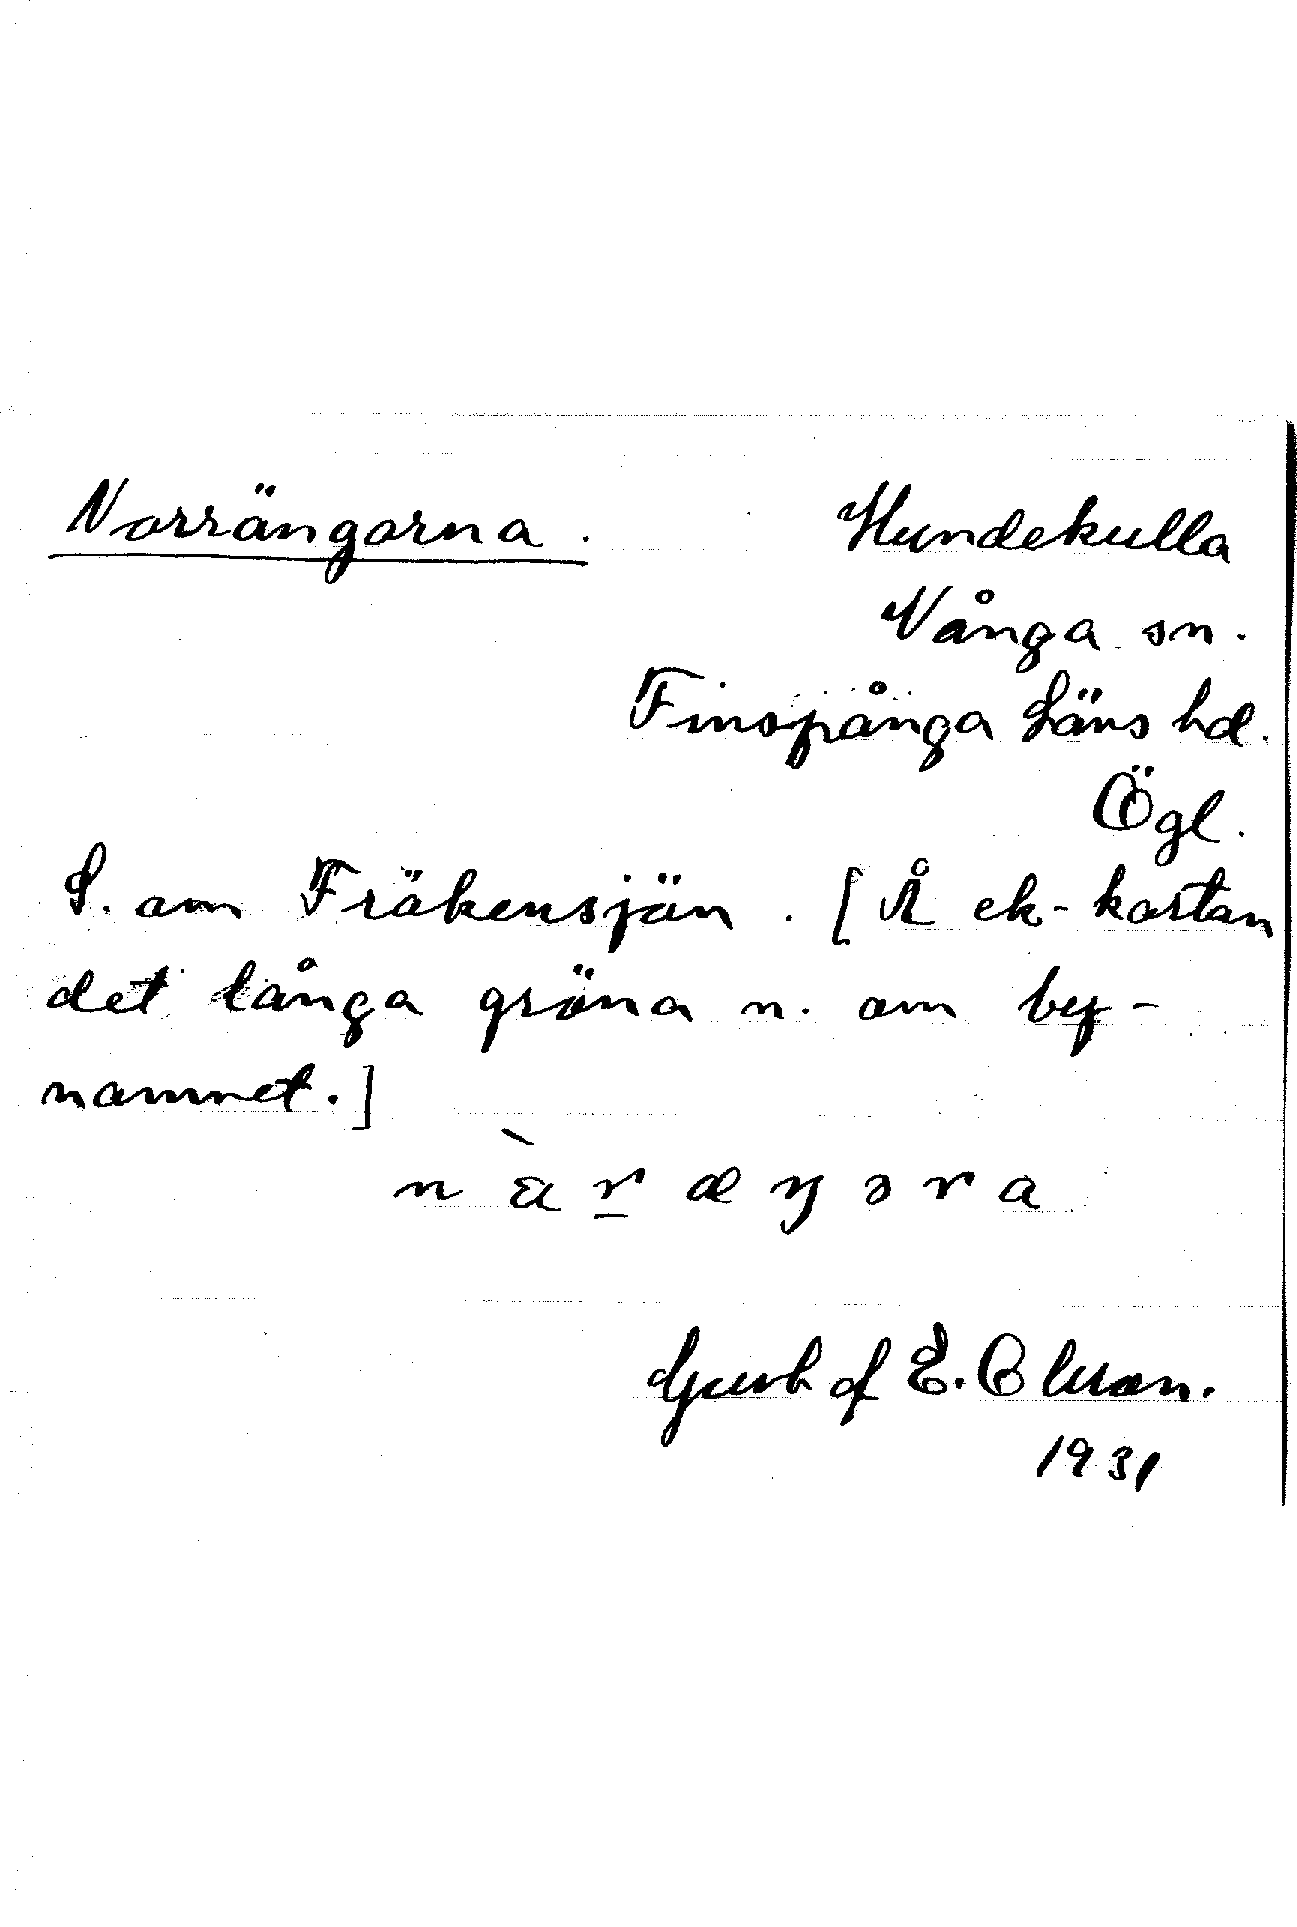 Norrängarna. Hundekulla
Vånga sn.
Finspånga läns hd.
Ögl.
S. om Fräkensjön. [Å ek-kartan
det långa gröna n. om by-
namnet.]
n ὰ r æ ŋ ə r a
Gust af E. Olsson.
1931